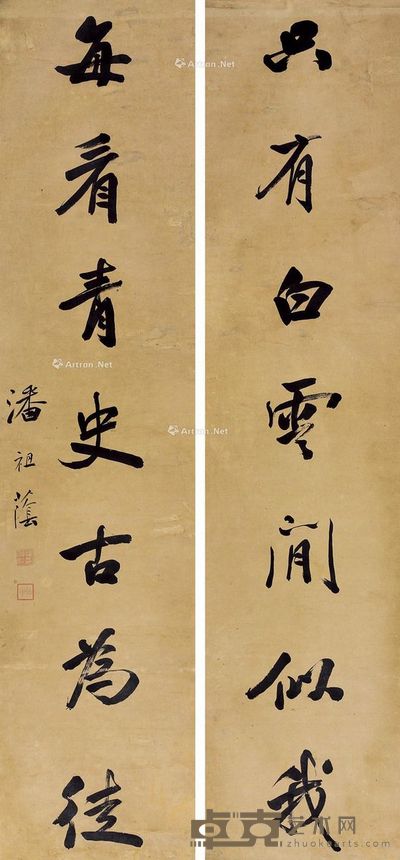 只有白雲閒似我
每看青史古為徒
潘祖蔭
Artron.Net
Artron.Net
Artron.Net
Artron.Net
卓克艺术网
zhuokearts.com